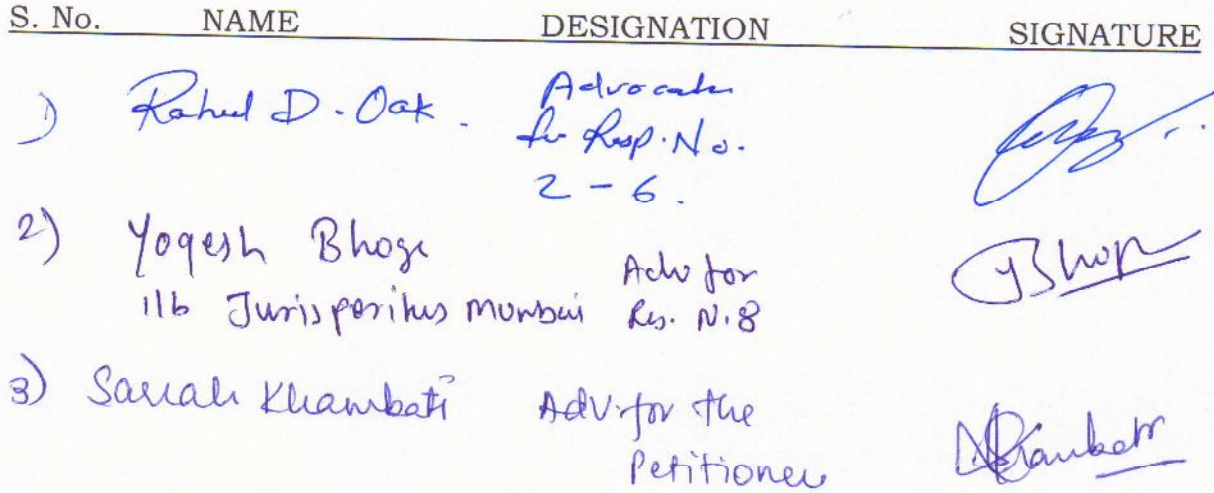 S. No. NAME DESIGNATION SIGNATURE
1) Rahul D. Oak. Advocate
for Resp. No.
2 - 6.
2) Yogesh Bhoge Adv for
i/b Jurisperitus Mumbai Res. N. 8
3) Sarrah Khambati Adv. for the
Petitioner